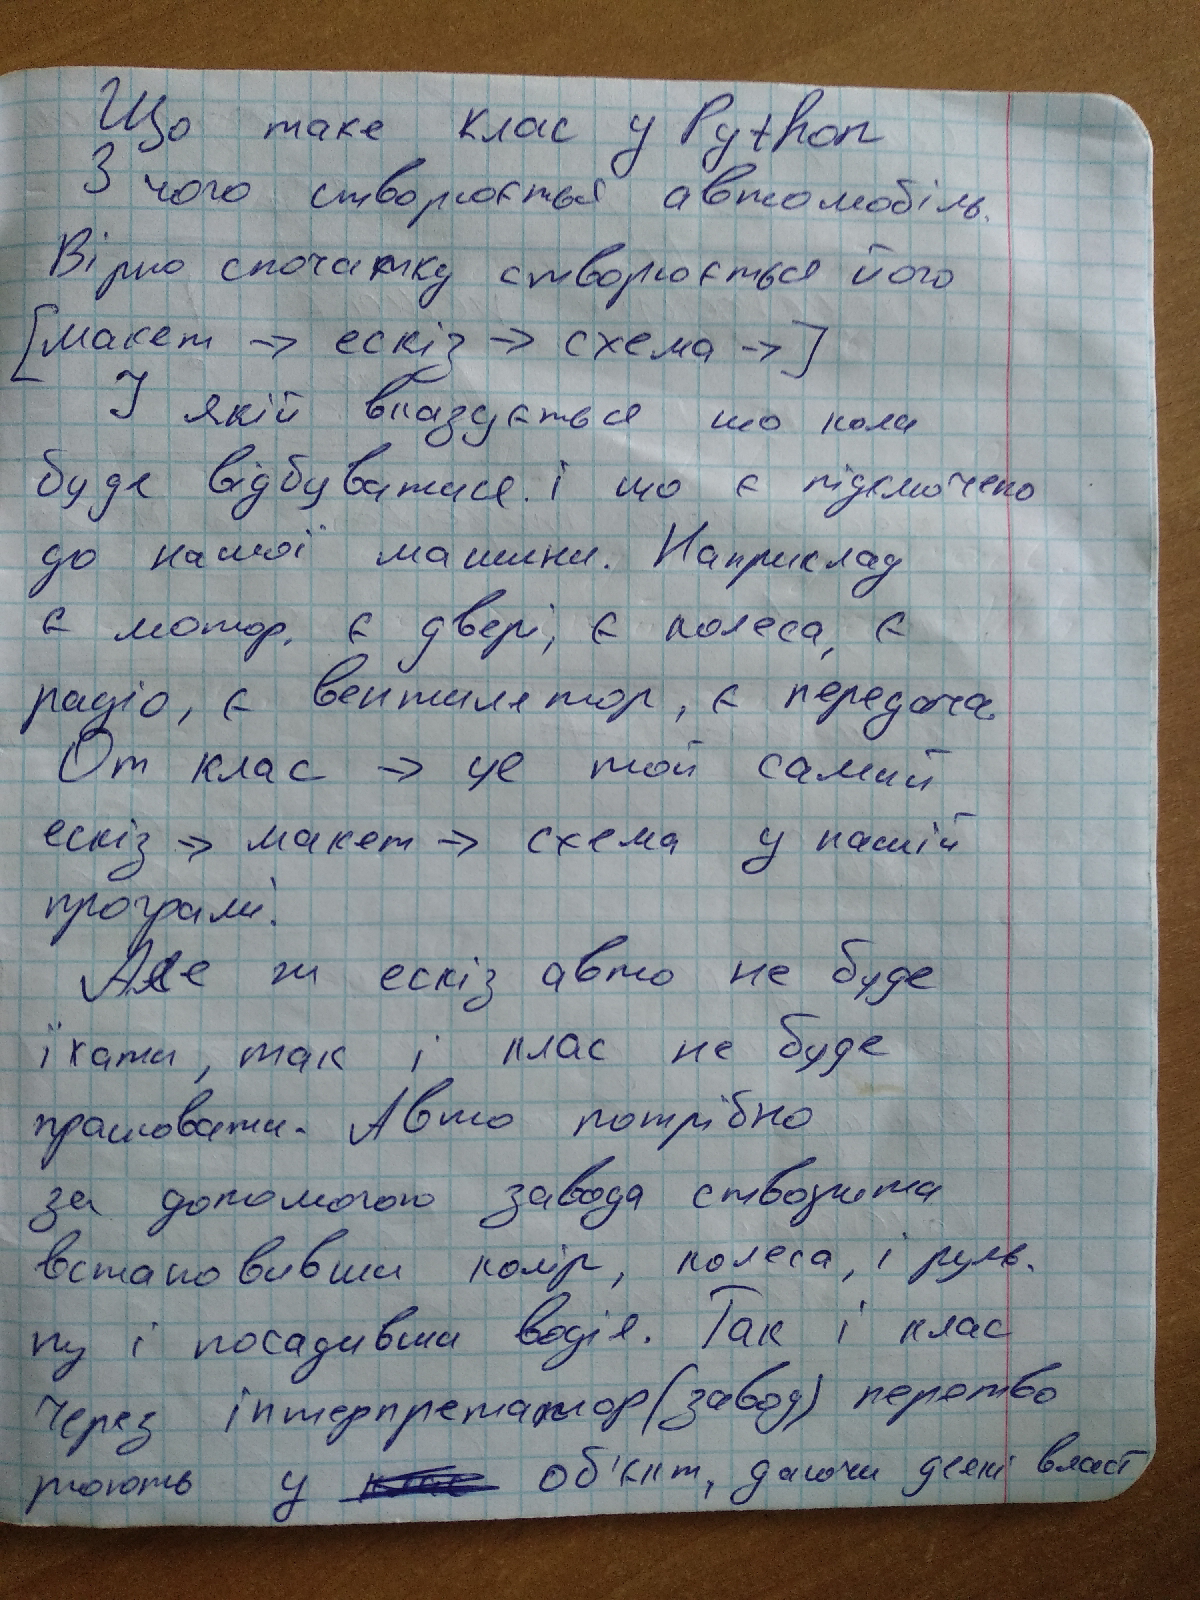 Що таке клас у Python
З чого створюється автомобіль.
Вірно спочатку створюється його
[макет → ескіз → схема →]
У якій вказується що коли
буде відбуватися. і що є підключено
до нашої машини. Наприклад
є мотор, є двері, є колеса, є
радіо, є вентилятор, є передача
От клас → це той самий
ескіз → макет → схема у нашій
програмі.
Але ж ескіз авто не буде
їхати, так і клас не буде
працювати. Авто потрібно
за допомогою завода створити
встановивши колір, колеса, і руль.
ну і посадивши водія. Так і клас
через інтерпретатор (завод) перетво
рюють у об'єкт, даючи деякі власт